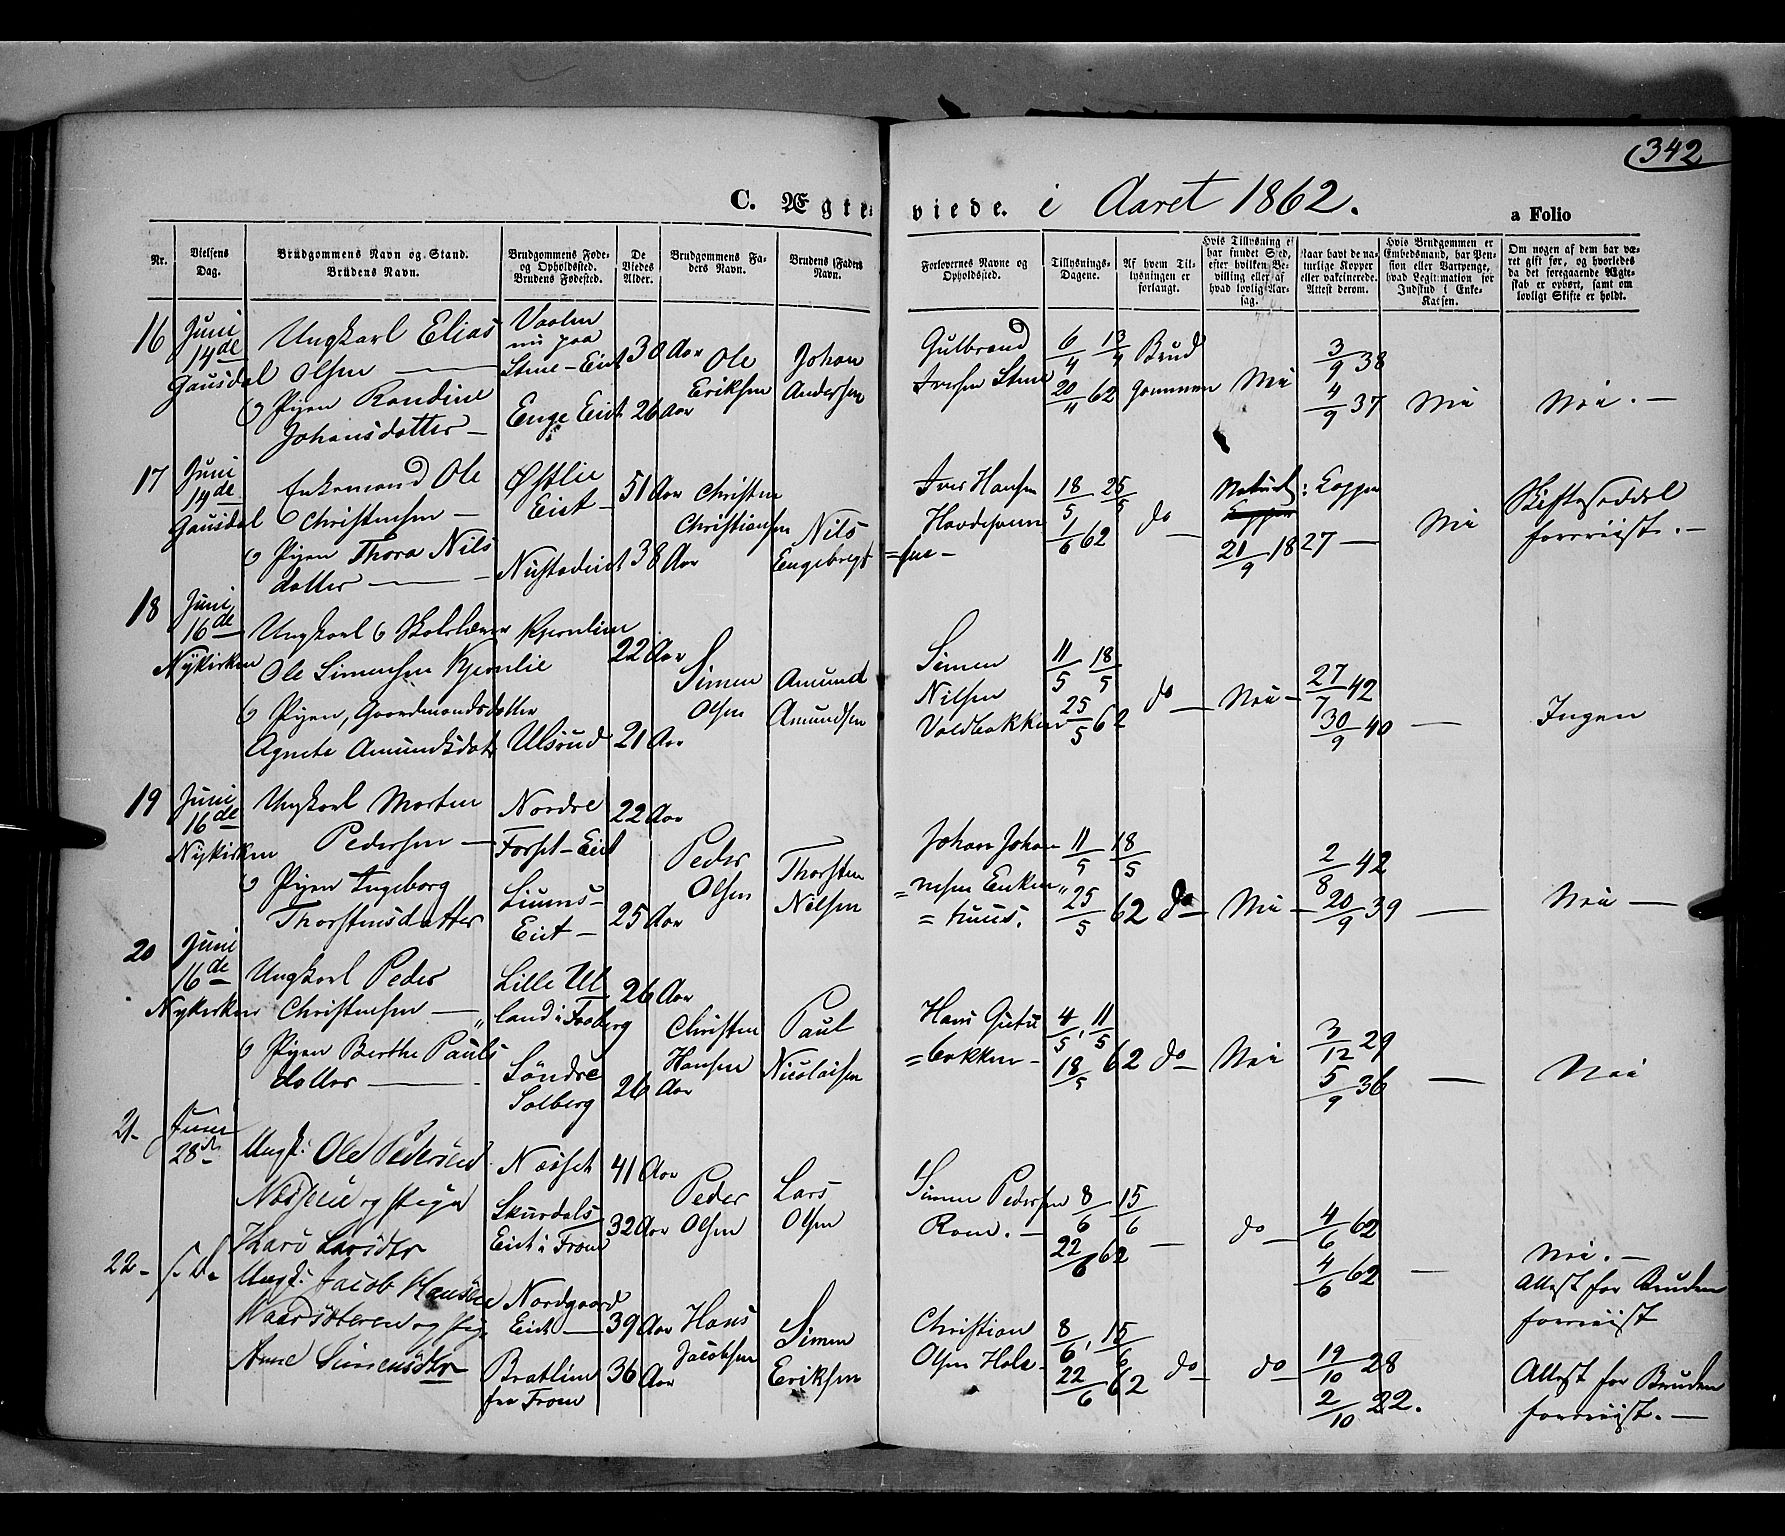 342
C. Ægteviede. i Aaret 1862.
a Folio
Nr.
Vielsens Dag.
Brüdgommens Navn og Stand.
Brüdens Navn.
Brudgommens Føde-
og Opholdssted.
Brudens Fødested.
De
Viedes
Alder.
Brudgommens Fa-
ders Navn.
Brudens Faders
Navn.
Forlovernes Navne og
Opholdssted.
Tillysnings-
Dagene.
Af hvem Til-
lysningen er
forlangt.
Hvis Tillysning ei
har fundet Sted,
efter hvilken Be-
villing eller af
hvad lovlig Aar-
sag.
Naar havt de na-
turlige Kopper
eller vakcinerede.
Attest derom.
Hvis Brudgommen er
Embedsmand, har Pen-
sion eller Vartpenge,
hvad Legitimation for
Indskud i Enke-
Kassen.
Om nogen af dem har væ-
ret gift før, og hvorledes
da det foregaaende Ægte-
skab er ophørt, samt om
lovligt Skifte er holdt.
16
Juni
14de
Gausdal
Ungkarl Elias
Olsen
Pigen Randine
Johansdatter
nu paa
Stene-Eiet
Enge Eiet
30 Aar
26 Aar
Ole
Eriksen
Johan
Andersen
Gulbrand
Iversen Stene
6/4 13/4
20/4 62
Brud
gommen
Nei
3/9 38
4/9 37
Nei
Nei.
17
Juni
14de
Gausdal
Enkemand Ole
Christensen
Pigen Thora Nils
datter
Østlie
Eiet
Nustadeiet
51 Aar
38 Aar
Christen
Christiansen
Nils
Engebregt
=sen
Iver Hansen
18/5 25/5
1/6 62
do
Naturl: Kopper
21/9 1827
Nei
Skifteseddel
foreviist.
18
Juni
16de
Nykirken
Ungkarl & Skolelærer
Ole Simensen Kjernlie
Pigen, Gaardmandsdatter
Agnete Amundsdat
Kjernlien
Ulsrud
22 Aar
21 Aar
Simen
Olsen
Amund
Amundsen
Simen
Nilsen
Voldbakken
11/5 18/5
25/5 62
do
Nei
27/7 42
30/9 40
Ingen
19
Juni
16de
Nykirken
Ungkarl Morten
Pedersen
Pigen Ingeborg
Thorstensdatter
Nordre
Forset-Eiet
Liums-
Eiet
22 Aar
25 Aar
Peder
Olsen
Thorsten
Nilsen
Johan Johan
=nesen Enken
=huus.
11/5 18/5
25/5 62
do
Nei
2/8 42
20/9 39
Nei
20
Juni
16de
Nykirken
Ungkarl Peder
Christensen
Pigen Berthe Pauls
datter
Lille Ul
land i Faaberg
Søndre
Solberg
26 Aar
26 Aar
Christen
Hansen
Paul
Nicolaisen
Hans
=bakken
4/5, 11/5
18/5 62
do
Nei
3/12 29
5/9 36
Nei
21
Juni
28de
Ungk: Ole Pedersen
og Pige
Kari Larsdtr
Næsset
Skurdals
Eiet i Fron
41 Aar
32 Aar
Peder
Olsen
Lars
Olsen
Simen Pedersen
Roen.
8/6 15/6
22/6 62
do
4/6 62
4/6 62
Nei.
Attest for Bruden
foreviist
22
s. D.
Ungk: Jacob Hansen
og Pige
Anne Simensdtr
Nordgaard
Eiet
Bratlien
fra Fron
39 Aar
36 Aar
Hans
Jacobsen
Simen
Eriksen
Christian
Olsen Hole
8/6, 15/6
22/6 62
do
do
19/10 28
2/10 22.
Attest for Bruden
foreviist.